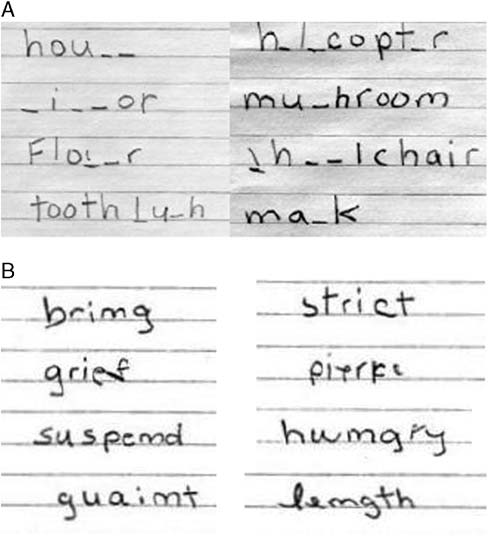 A
hou__
_i__or
Flo__r
tooth_u_h
h_l_copt_r
mu_hroom
_h__lchair
ma_k
B
brimg
grief
suspemd
guaimt
strict
humgry
lemgth